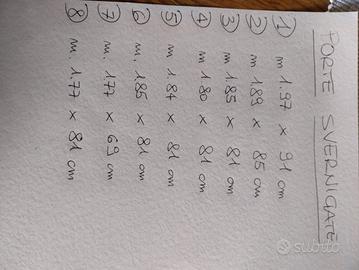 PORTE SVERNIGATE
① m 1.97 x 91 cm
② m 1.89 x 85 cm
③ m 1.85 x 81 cm
④ m 1.80 x 81 cm
⑤ m 1.87 x 81 cm
⑥ m, 1,85 x 81 cm
⑦ m. 1.77 x 69 cm
⑧ m 1.77 x 81 cm
subito